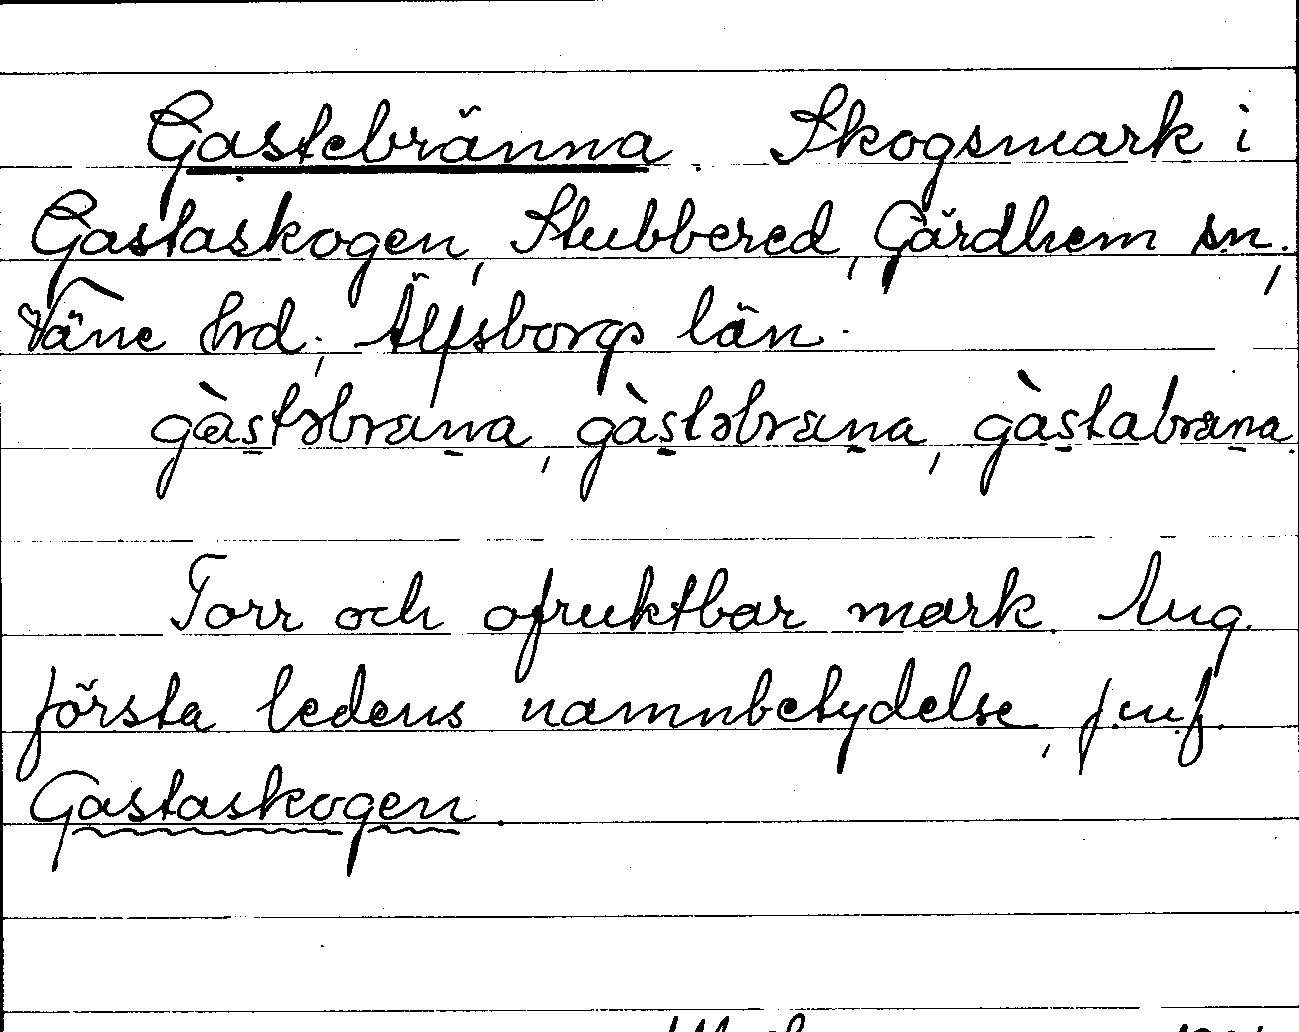 Gastebränna. Skogsmark i
Gastaskogen, Stubbered, Gärdhem sn.,
Väne hrd., Älfsborgs län.
gàstəbræna, gàstəbræna, gàstabræna.
Torr och ofruktbar mark. Ang.
första ledens namnbetydelse, jmf.
Gastaskogen.